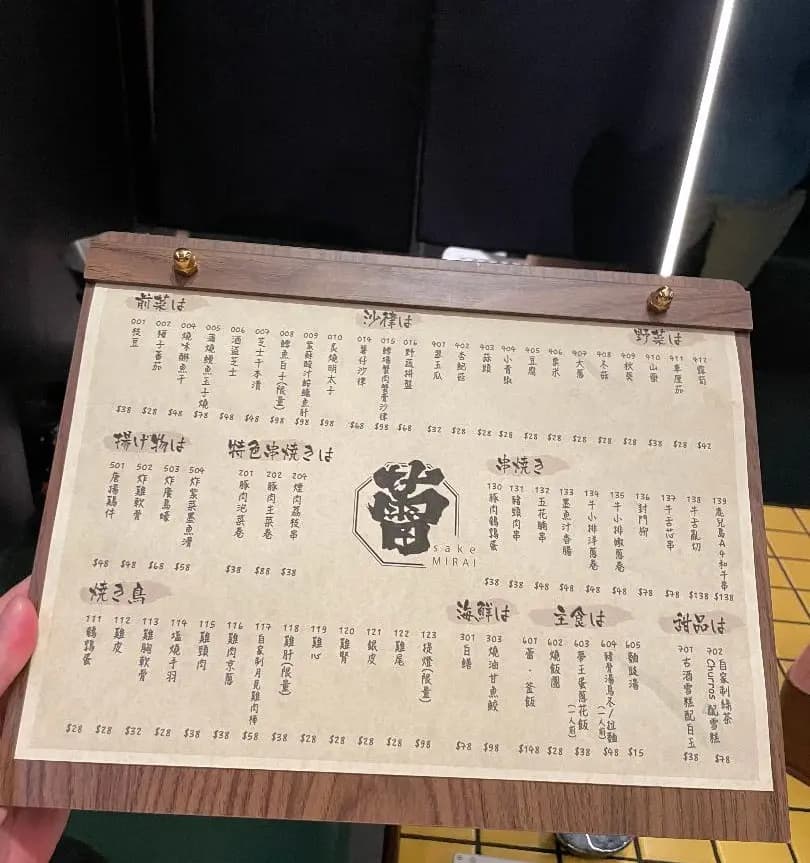 前菜は
001 枝豆 $38
002 柚子番茄 $28
004 燒味醂魚干 $48
005 蒲燒鰻魚玉子燒 $78
006 酒盜芝士 $48
007 芝士千本漬 $48
008 鱈魚白子(限量) $98
009 紫蘇酸汁鮟鱇魚肝 $98
010 炙燒明太子 $98
沙律は
014 薯仔沙律 $68
015 鱈場蟹肉蟹膏沙律 $98
016 野蔬拼盤 $68
野菜は
401 翠玉瓜 $32
402 杏鮑菇 $28
403 蒜頭 $28
404 小青椒 $28
405 豆腐 $28
406 粟米 $28
407 大蔥 $28
408 冬菇 $28
409 秋葵 $28
410 山藥 $38
411 車厘茄 $28
412 露筍 $42
揚げ物は
501 唐揚雞件 $48
502 炸雞軟骨 $48
503 炸廣島蠔 $68
504 炸紫菜墨魚滑 $58
特色串焼きは
201 豚肉泡菜卷 $38
202 豚肉生菜卷 $88
204 煙肉荔枝串 $38
sake
MIRAI
串焼き
130 豚肉鵪鶉蛋 $38
131 豬頸肉串 $38
132 五花腩串 $48
133 墨魚汁香腸 $48
134 牛小排洋蔥卷 $48
135 牛小排椒蔥卷 $48
136 封門柳 $78
137 牛舌芯串 $78
138 牛舌亂切 $138
139 鹿兒島A4和牛串 $138
焼き鳥
111 鵪鶉蛋 $28
112 雞皮 $28
113 雞胸軟骨 $32
114 塩燒手羽 $28
115 雞頸肉 $38
116 雞肉京蔥 $38
117 自家制月見雞肉棒 $58
118 雞肝(限量) $38
119 雞心 $28
120 雞腎 $28
121 銀皮 $28
122 雞尾 $28
123 提燈(限量) $98
海鮮は
301 白鱔 $78
303 燒油甘魚鮫 $98
主食は
601 蕾・釜飯 $148
602 燒飯團 $28
603 夢王蛋蔥花飯(一人前) $38
604 豬骨湯烏冬/拉麵(一人前) $48
605 麵豉湯 $15
甜品は
701 古酒雪糕配白玉 $38
702 自家制綠茶Churros配雪糕 $78